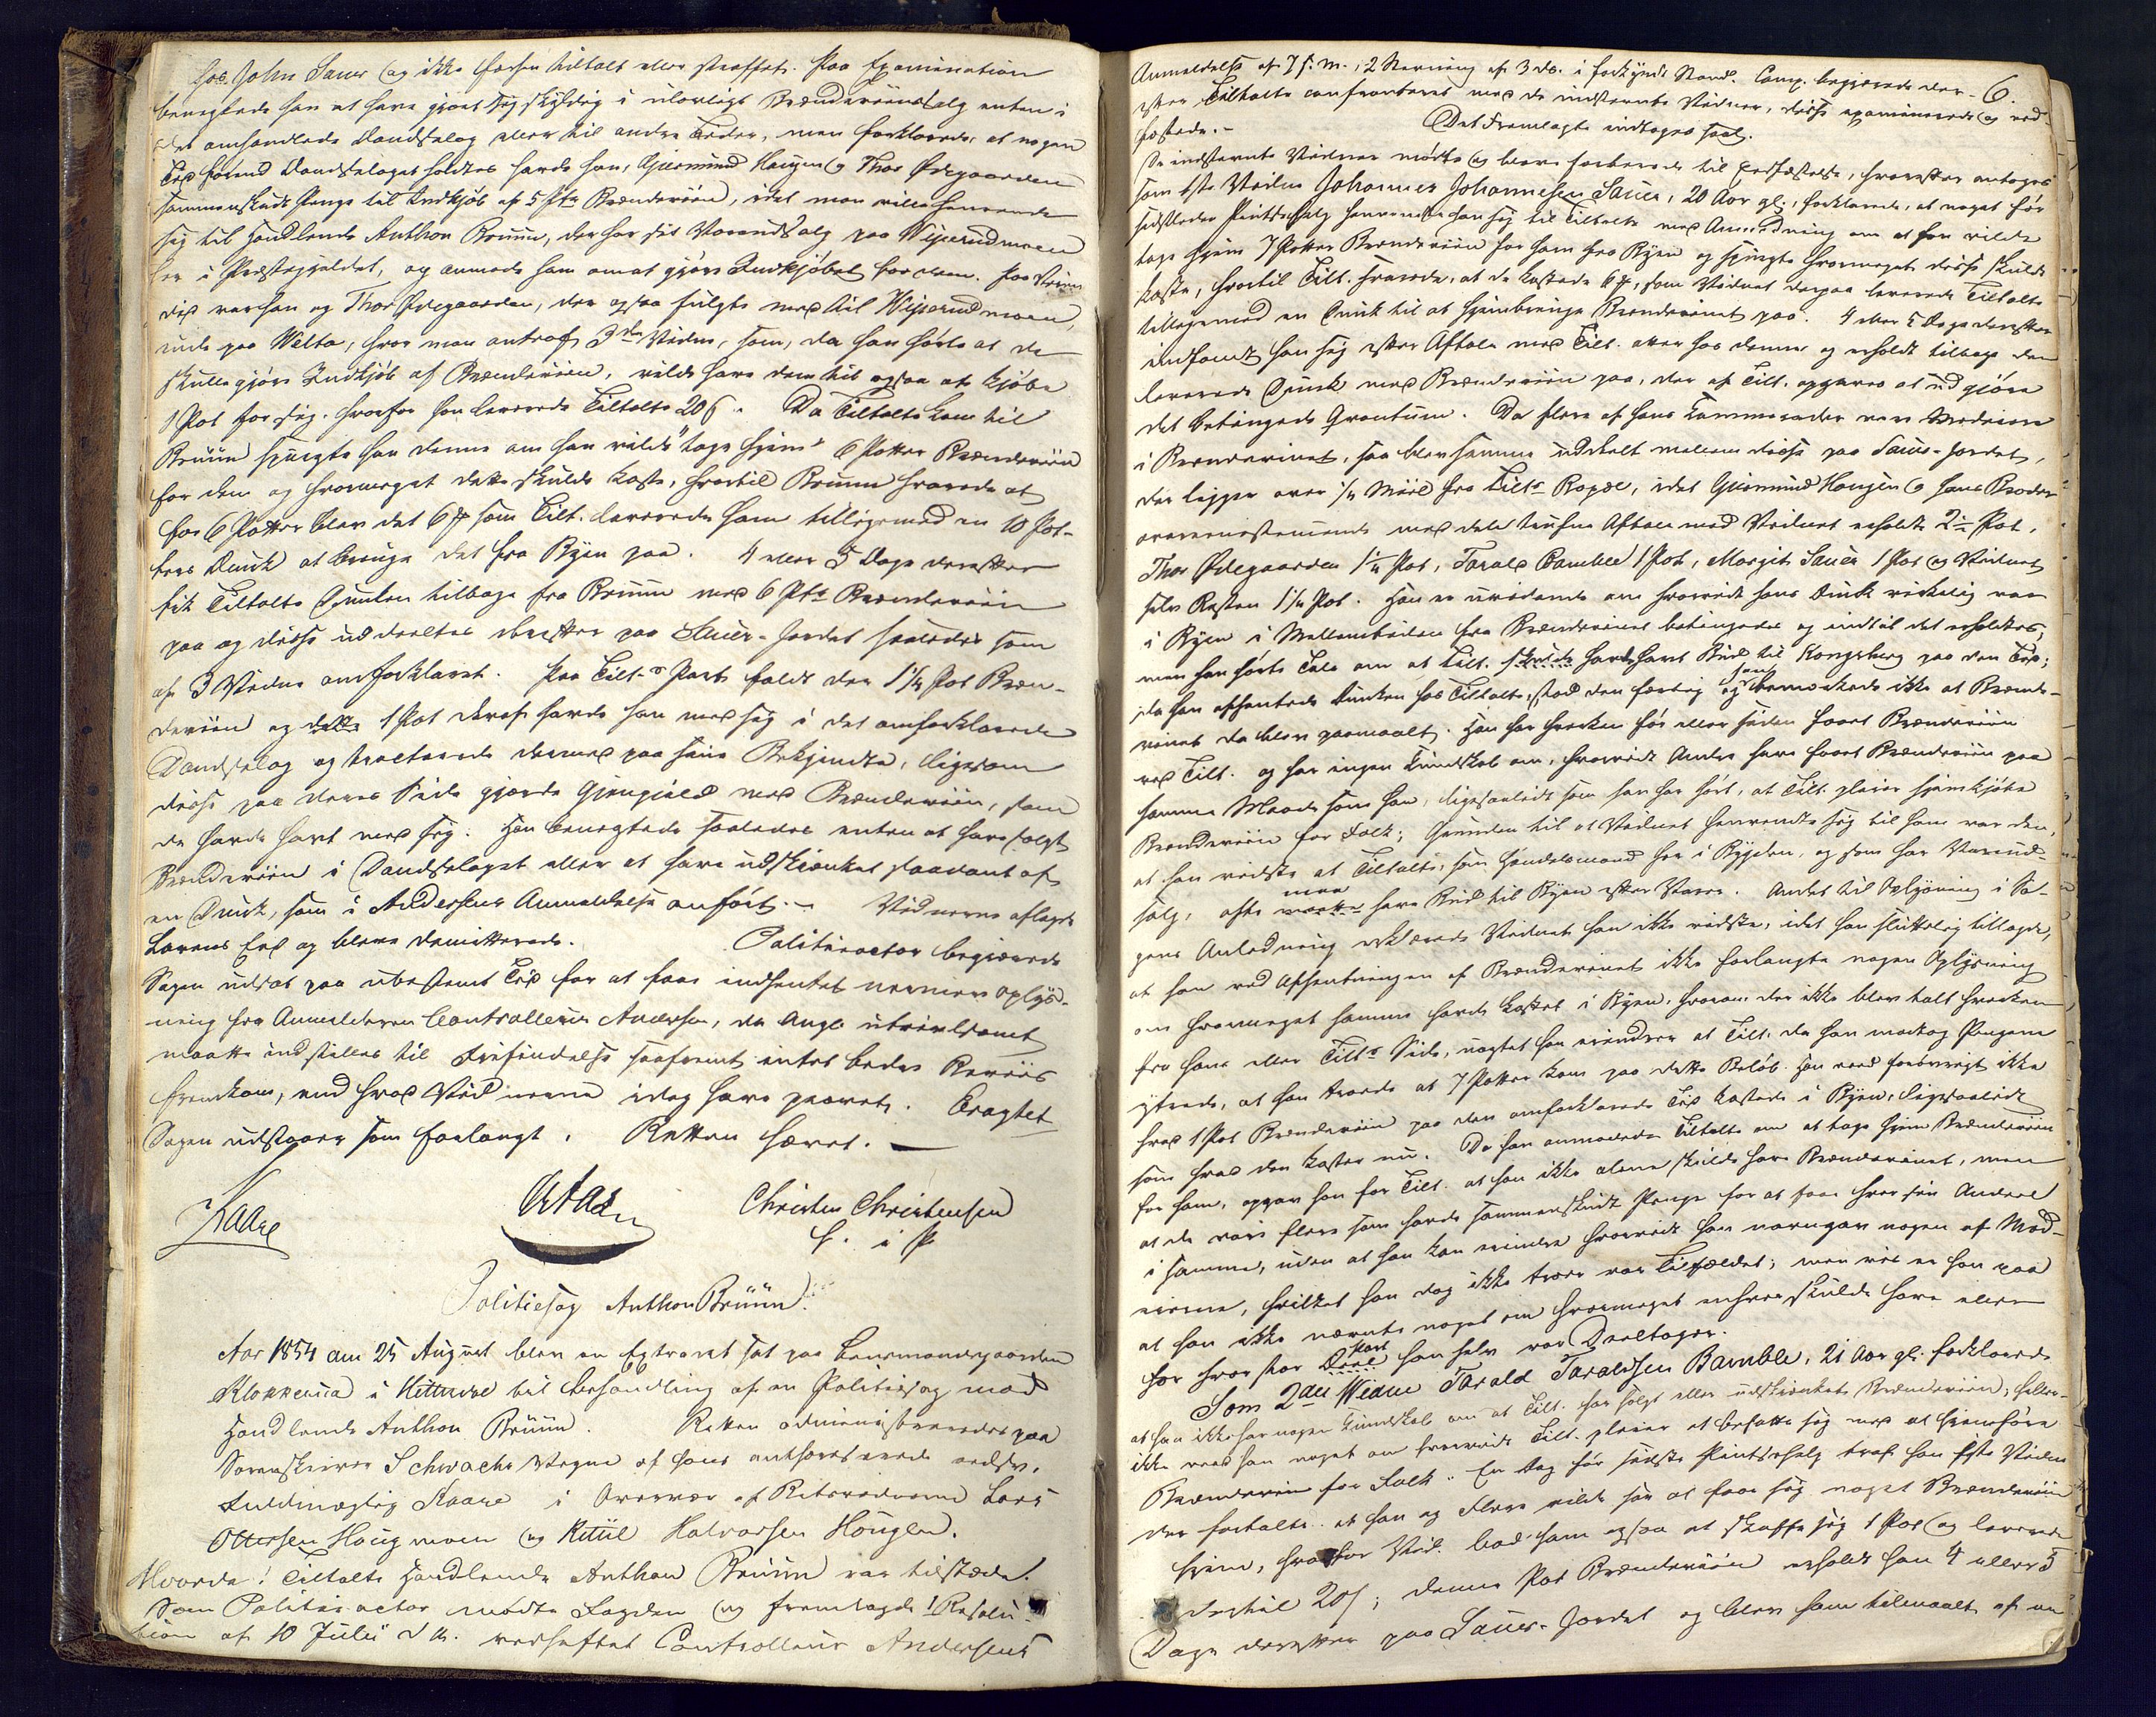 hos John Sauer og ikke forhen tiltalt eller straffet. Paa Examination
benegtede han at have gjort sig skyldig i ulovligt Brændeviinssalg enten i
det omhandlede Dandselag eller til andre Tider, men forklarede, at nogen
Tid førend Dandselaget holdtes havde han, Gjermund Haugen og Thor Ødegaarden
sammenskudt Penge til Indkjøb af 5 Ptr Brændeviin, idet man vilde henvende
sig til Handlende Anthon Bruun, der har sit Vareudsalg paa
her i Præstegjældet, og anmode ham om at gjøre Indkjøbet for dem. Paa Veien
did var han og Thor Ødegaarden, der ogsaa fulgte med til
inde paa Welta, hvor man antraf 3die Vidne, som, da han hørte at de
skulle gjøre Indkjøb af Brændeviin, vilde have dem til ogsaa at kjøbe
1 Pot for sig, hvorfor han leverede Tiltalte 20 s. Da Tiltalte kom til
Bruun spurgte han denne om han vilde "tage hjem" 6 Potter Brændeviin
for dem og hvormeget dette skulde koste, hvortil Bruun svarede at
for 6 Potter blev det 6 # som Tilt. leverede ham tilligemed en 10 Pot-
ters Dunk at bringe det fra Byen paa. 4 eller 5 Dage derefter
fik Tiltalte Dunken tilbage fra Bruun med 6 Ptr Brændeviin
paa og disse uddeeltes derefter paa Sauer-Jordet saaledes som
af 3 Vidne omforklaret. Paa Tilt-s Part faldt der 1 1/4 Pot Bræn-
deviin og dette 1 Pot deraf havde han med sig i det omforklarede
Dandselag og tracterede dermed paa sine Bekjendte, ligesom
disse paa deres Side gjorde Gjengjeld med Brændeviin, som
de havde havt med sig. Han benegtede saaledes enten at have solgt
Brændeviin i Dandselaget eller at have udskjænket saadant af
en Dunk, som i Andersens Anmeldelse anført. - Vidnerne aflagde
Lovens Eed og bleve demitterede. Politieactor begjærede
Sagen udsat paa ubestemt Tid for at faae indhentet nærmere Oplys-
ning fra Anmelderen Controlleur Andersen, da Angl. utvivlsomt
maatte indstilles til Frifindelse saafremt intet bedre Beviis
fremkom, end hvad Vidnerne idag have provet. Eragtet
Sagen udstaaer som forlangt. Retten hævet. —
Kaare Christen Christensen
L. i P
Politiesag Anthon Bruun.
Aar 1854 den 25 August blev en Extraret sat paa Lensmandsgaarden
Klokkerud i Hitterdal til Behandling af en Politiesag mod
Handlende Anthon Bruun. Retten administreredes paa
Sorenskriver Schwachs Vegne af hans authoriserede edsv.
Fuldmægtig Kaare i Overvær af Retsvidnerne Lars
Ottersen Haugmoen og Kittil Halvorsen Haugen.
Hvorda! Tiltalte Handlende Anthon Bruun var tilstæde.
Som Politieactor mødte Fogden og fremlagde! Resolu-
tion af 10 Julii d. A. vedheftet Controlleur Andersens
6.
Anmeldelse af 7 f. M.; 2 Stevning af 3 ds. i forkyndt Stand. Comp. begjærede der-
efter Tiltalte confronteret med de indstevnte Vidner, disse examinerede og ved-
hæftede. - Det Fremlagte indtages saal.
De indstevnte Vidner mødte og bleve forberedt til Eedfæstelse, hvorefter antoges
som 1ste Vidne Johannes Johannesen Sauer, 20 Aar gl., forklarede, at noget før
sidstleden Pintsehelg henvendte han sig til Tiltalte med Anmodning om at han vilde
tage hjem 7 Potter Brændeviin for ham fra Byen og spurgte hvormeget disse skulde
koste, hvortil Tilt. svarede, at de kostede 6 #, som Vidnet derpaa leverede Tiltalte
tilligemed en Dunk til at hjembringe Brændevinet paa. 4 eller 5 Dage derefter
indfandt han sig efter Aftale med Tilt. atter hos denne og erholdt tilbage den
leverede Dunk med Brændeviin paa, der af Tilt. opgaves at udgjøre
det betingede Qvantum. Da flere af hans Kammerader vare Medeiere
i Brændevinet, saa blev samme uddeelt mellem disse paa Sauer-Jordet,
der ligger over 1/4 Miil fra Tilts Bopæl, idet Gjermund Haugen og hans Broder
overeensstemmende med dele trufne Aftale med Vidnet erholdt 2 Pot,
Thor Ødegaarden 1 1/4 Pot, Tarald Bamble 1 Pot, Margit Sauer 1 Pot og Vidnet
selv Resten 1 1/4 Pot. Han er uvidende om hvorvidt hans Dunk virkelig var
i Byen i Mellemtiden fra Brændevinet betingedes og indtil det erholdtes,
men han hørte Tale om at Tilt. skulde havde havt Bud til Kongsberg paa den Tid;
da han afhentede Dunken hos Tiltalte, stod den færdig og han bemærkede ikke at Brænde-
vinet da blev paamaalt. Han har hverken før eller siden faaet Brændeviin
ved Tilt. og har ingen Kundskab om, hvorvidt Andre have faaet Brændeviin paa
samme Maade som han, ligesaalidt som han har hørt, at Tilt. pleier hjemkjøbe
Brændeviin for Folk; Grunden til at Vidnet henvendte sig til ham var den,
at han vidste at Tiltalte, som Handelsmand her i Bygden, og som har Vareud-
salg, ofte maatte maa have Bud til Byen efter Varer. Andet til Oplysning i Sa-
gens Anledning erklærede Vidnet han ikke vidste, idet han sluttelig tillagde,
at han ved Afhentningen af Brændevinet ikke forlangte nogen Oplysning
om hvormeget samme havde kostet i Byen, hvorom der ikke blev talt hverken
fra hans eller Tilts Side, uagtet han erindrer at Tilt. da han modtog Pengene
yttrede, at han troede at 7 Potter kom paa dette Beløb. Han veed forøvrigt ikke
hvad 1 Pot Brændeviin paa den omforklarede Tid kostede i Byen, ligesaalidt
som hvad den koster nu. Da han anmodede Tiltalte om at tage hjem Brændeviin
for ham, opgav han for Tilt. at han ikke alene skulde have Brændevinet, men
at de vare flere som havde sammenskudt Penge for at faae hver sin Andeel
i samme, uden at han kan erindre hvorvidt han navngav nogen af Med-
eierne, hvilket han dog ikke troer var Tilfældet; men vis er han paa
at han ikke nævnte noget om hvormeget enhver skulde have eller
for hvor stor Deel Part han selv var Deeltager.
Som 2det Vidne Tarald Taraldsen Bamble, 21 Aar gl. forklarede
at han ikke har nogen Kundskab om at Tilt. har solgt eller udskjænket Brændeviin, heller
ikke veed han noget om hvorvidt Tilt. pleier at befatte sig med at hjemføre
Brændeviin for Folk. En Dag før sidste Pintsehelg traf han 1ste Vidne
der fortalte at han og Flere vilde see at faae sig noget Brændeviin
hjem, hvorfor Vid. bad ham ogsaa at skaffe sig 1 Pot og leverede
dertil 20 s; denne Pot Brændeviin erholdt han 4 eller 5
Dage derefter paa Sauer-Jordet og blev ham tilmaalt af en